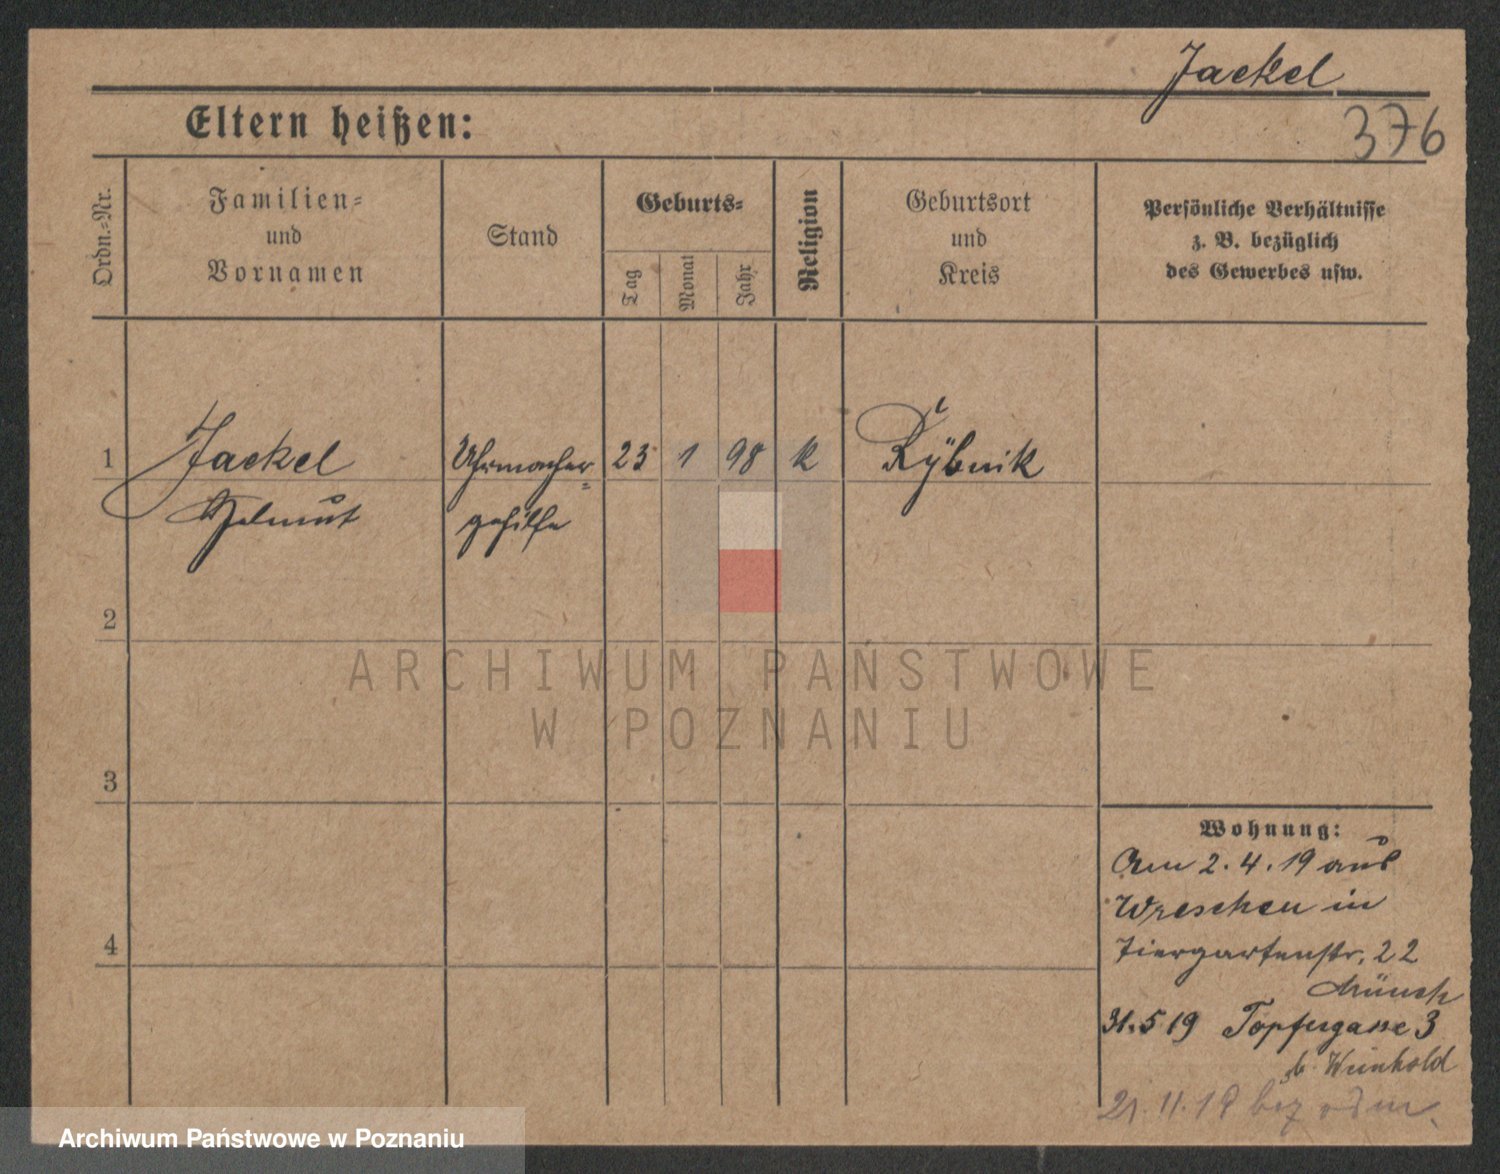 Jaekel
376
Eltern heißen:
Ordn.-Nr.
Familien-
und
Vornamen
Stand
Geburts-
Tag
Monat
Jahr
Religion
Geburtsort
und
Kreis
Persönliche Verhältnisse
z. B. bezüglich
des Gewerbes usw.
1 Jaekel Uhrmacher= 23 1 98 k Rÿbnik
Helmut gehilfe
2
ARCHIWUM PAŃSTWOWE
W POZNANIU
3
Wohnung:
Am 2.4.19 aus
Wreschen in
4
Tiergartenstr. 22
Münch
31.5 19 Töpfergasse 3
b. Weinhold
21.11.19
Archiwum Państwowe w Poznaniu